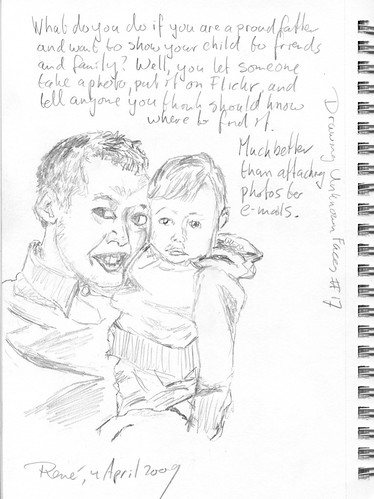 What do you do if you are a proud father
and want to show your child to friends
and family? Well, you let someone
take a photo, put it on Flickr, and
tell anyone you think should know
where to find it.
Much better
than attaching
photos to
e-mails.
Drawing Unknown Faces #17
René, 4 April 2009